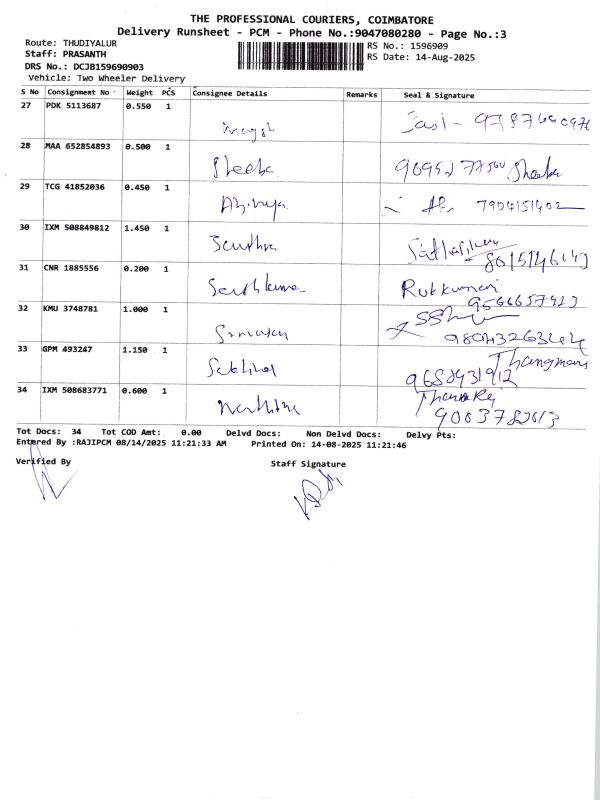 THE PROFESSIONAL COURIERS, COIMBATORE
Delivery Runsheet - PCM - Phone No.:9047080280 - Page No.:3
Route: THUDIYALUR
RS No.: 1596909
Staff: PRASANTH
RS Date: 14-Aug-2025
DRS No.: DCJB159690903
Vehicle: Two Wheeler Delivery
S No Consignment No Weight PCS Consignee Details Remarks Seal & Signature
27 PDK 5113687 0.550 1
28 MAA 652854893 0.500 1
Sheeba Sheeba
29 TCG 41852036 0.450 1
Abinya 7904151402
30 IXM 508849812 1.450 1
31 CNR 1885556 0.200 1
Rukkumani
9566657923
32 KMU 3748781 1.000 1
33 GPM 493247 1.150 1
9688931912
34 IXM 508683771 0.600 1
Tot Docs: 34 Tot COD Amt: 0.00 Delvd Docs: Non Delvd Docs: Delvy Pts:
Entered By :RAJIPCM 08/14/2025 11:21:33 AM Printed On: 14-08-2025 11:21:46
Verified By
Staff Signature